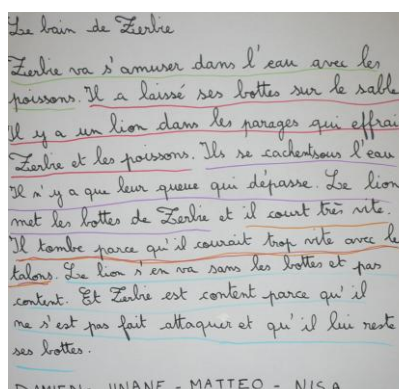 Le bain de Zerbie
Zerbie va s'amuser dans l'eau avec les
poissons. Il a laissé ses bottes sur le sable
Il y a un lion dans les parages qui effrai
Zerbie et les poissons. Ils se cachentsous l'eau
Il n'y a que leur queue qui dépasse. Le lion
met les bottes de Zerbie et il court très vite.
Il tombe parce qu'il courait trop vite avec le
talons. Le lion s'en va sans les bottes et pas
content. Et Zerbie est content parce qu'il
ne s'est pas fait attaquer et qu'il lui reste
ses bottes.
- MATTEO - NISA